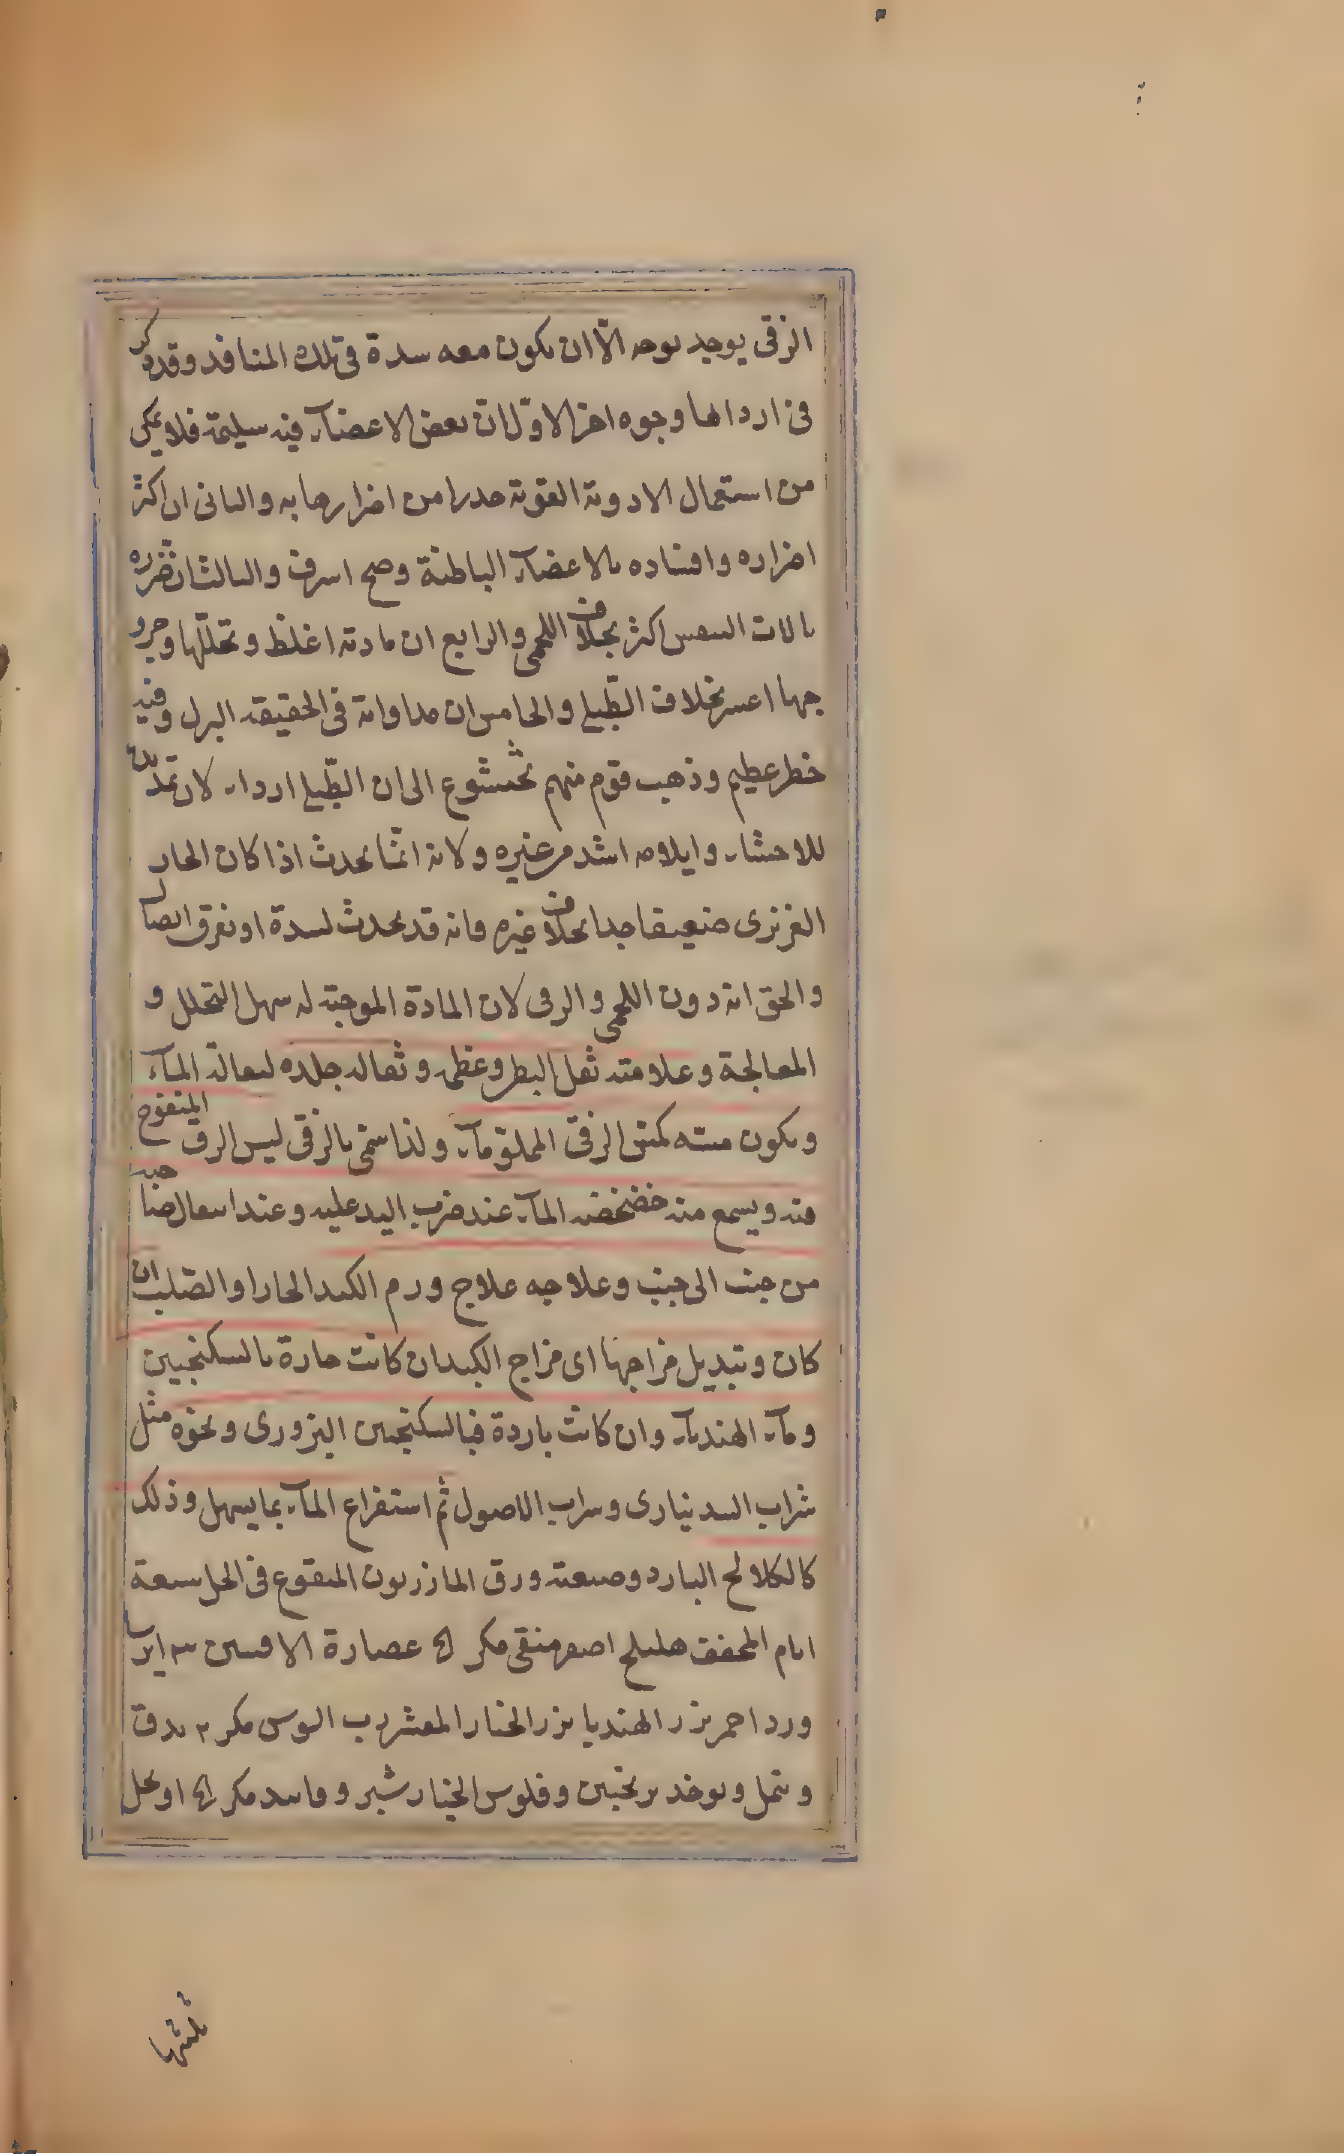 الزقى يوجد بوجه الّا ان يكون معه سدة فى تلك المنافد وقد ذكر
فى ارداها وجوه اخر الاوّل ان بعض الاعضآء فيه سليمة فلا يمكن
من استعمال الادوية القوية حذرا من اضرارها به والثانى ان اكثر
اضراره وافساده بالاعضآء الباطنة وهى اشرف والثالث ان تضرره
بالات التنفس اكثر بخلاف اللحمى والرابع ان مادته اغلظ وتحللها وخرو
جها اعسر بخلاف الطّبلى والخامس ان مداواته فى الحقيقه البزل وفيه
خطر عظيم وذهب قوم منهم بختيشوع الى ان الطّبلى اردا لان تمديده
للاحشاء وايلامه اشد من غيره ولانه انما يحدث اذا كان الحار
الغزيزى ضعيفا جدا بخلاف غيره فانه قد يحدث لسدة او تفرق اتصال
والحق انه دون اللحمى والزقى لان المادة الموجبة له سهل التحلل و
المعالجة وعلامته ثقل البطن وعظمه وثقاله جلده لصقالة المآء
ويكون مسّه كمسّ الزقّ المملو مآء ولذا سمّى بالزقى ليس الزق المنفوخ
فيه ويسمع منه خضخضة المآء عند ضرب اليد عليه وعند انتقال صاحبه
من جنب الى جنب وعلاجه علاج ورم الكبد الحار او الصّلب ان
كان وتبديل مزاجها اى مزاج الكبد ان كانت حارة بالسكنجبين
ومآء الهندبآء وان كانت باردة فبالسكنجبين البزورى ونحوه مثل
شراب الدينارى وشراب الاصول ثم استفراغ المآء بما يسهل وذلك
كالكلانج البارد وصنعته ورق المازريون المنقوع فى الخل سبعة
ايام المجفف هليلج اصفر منقى مكر عصارة الافسنتين ايرسا
ورد احمر بزر الهندبا بزر الخيار المقشر رب السوس مكر ٢ يدق
وينخل ويوخذ ترنجبين وفلوس الخيار شنبر وفانيد مكر او يحل
ثلثها